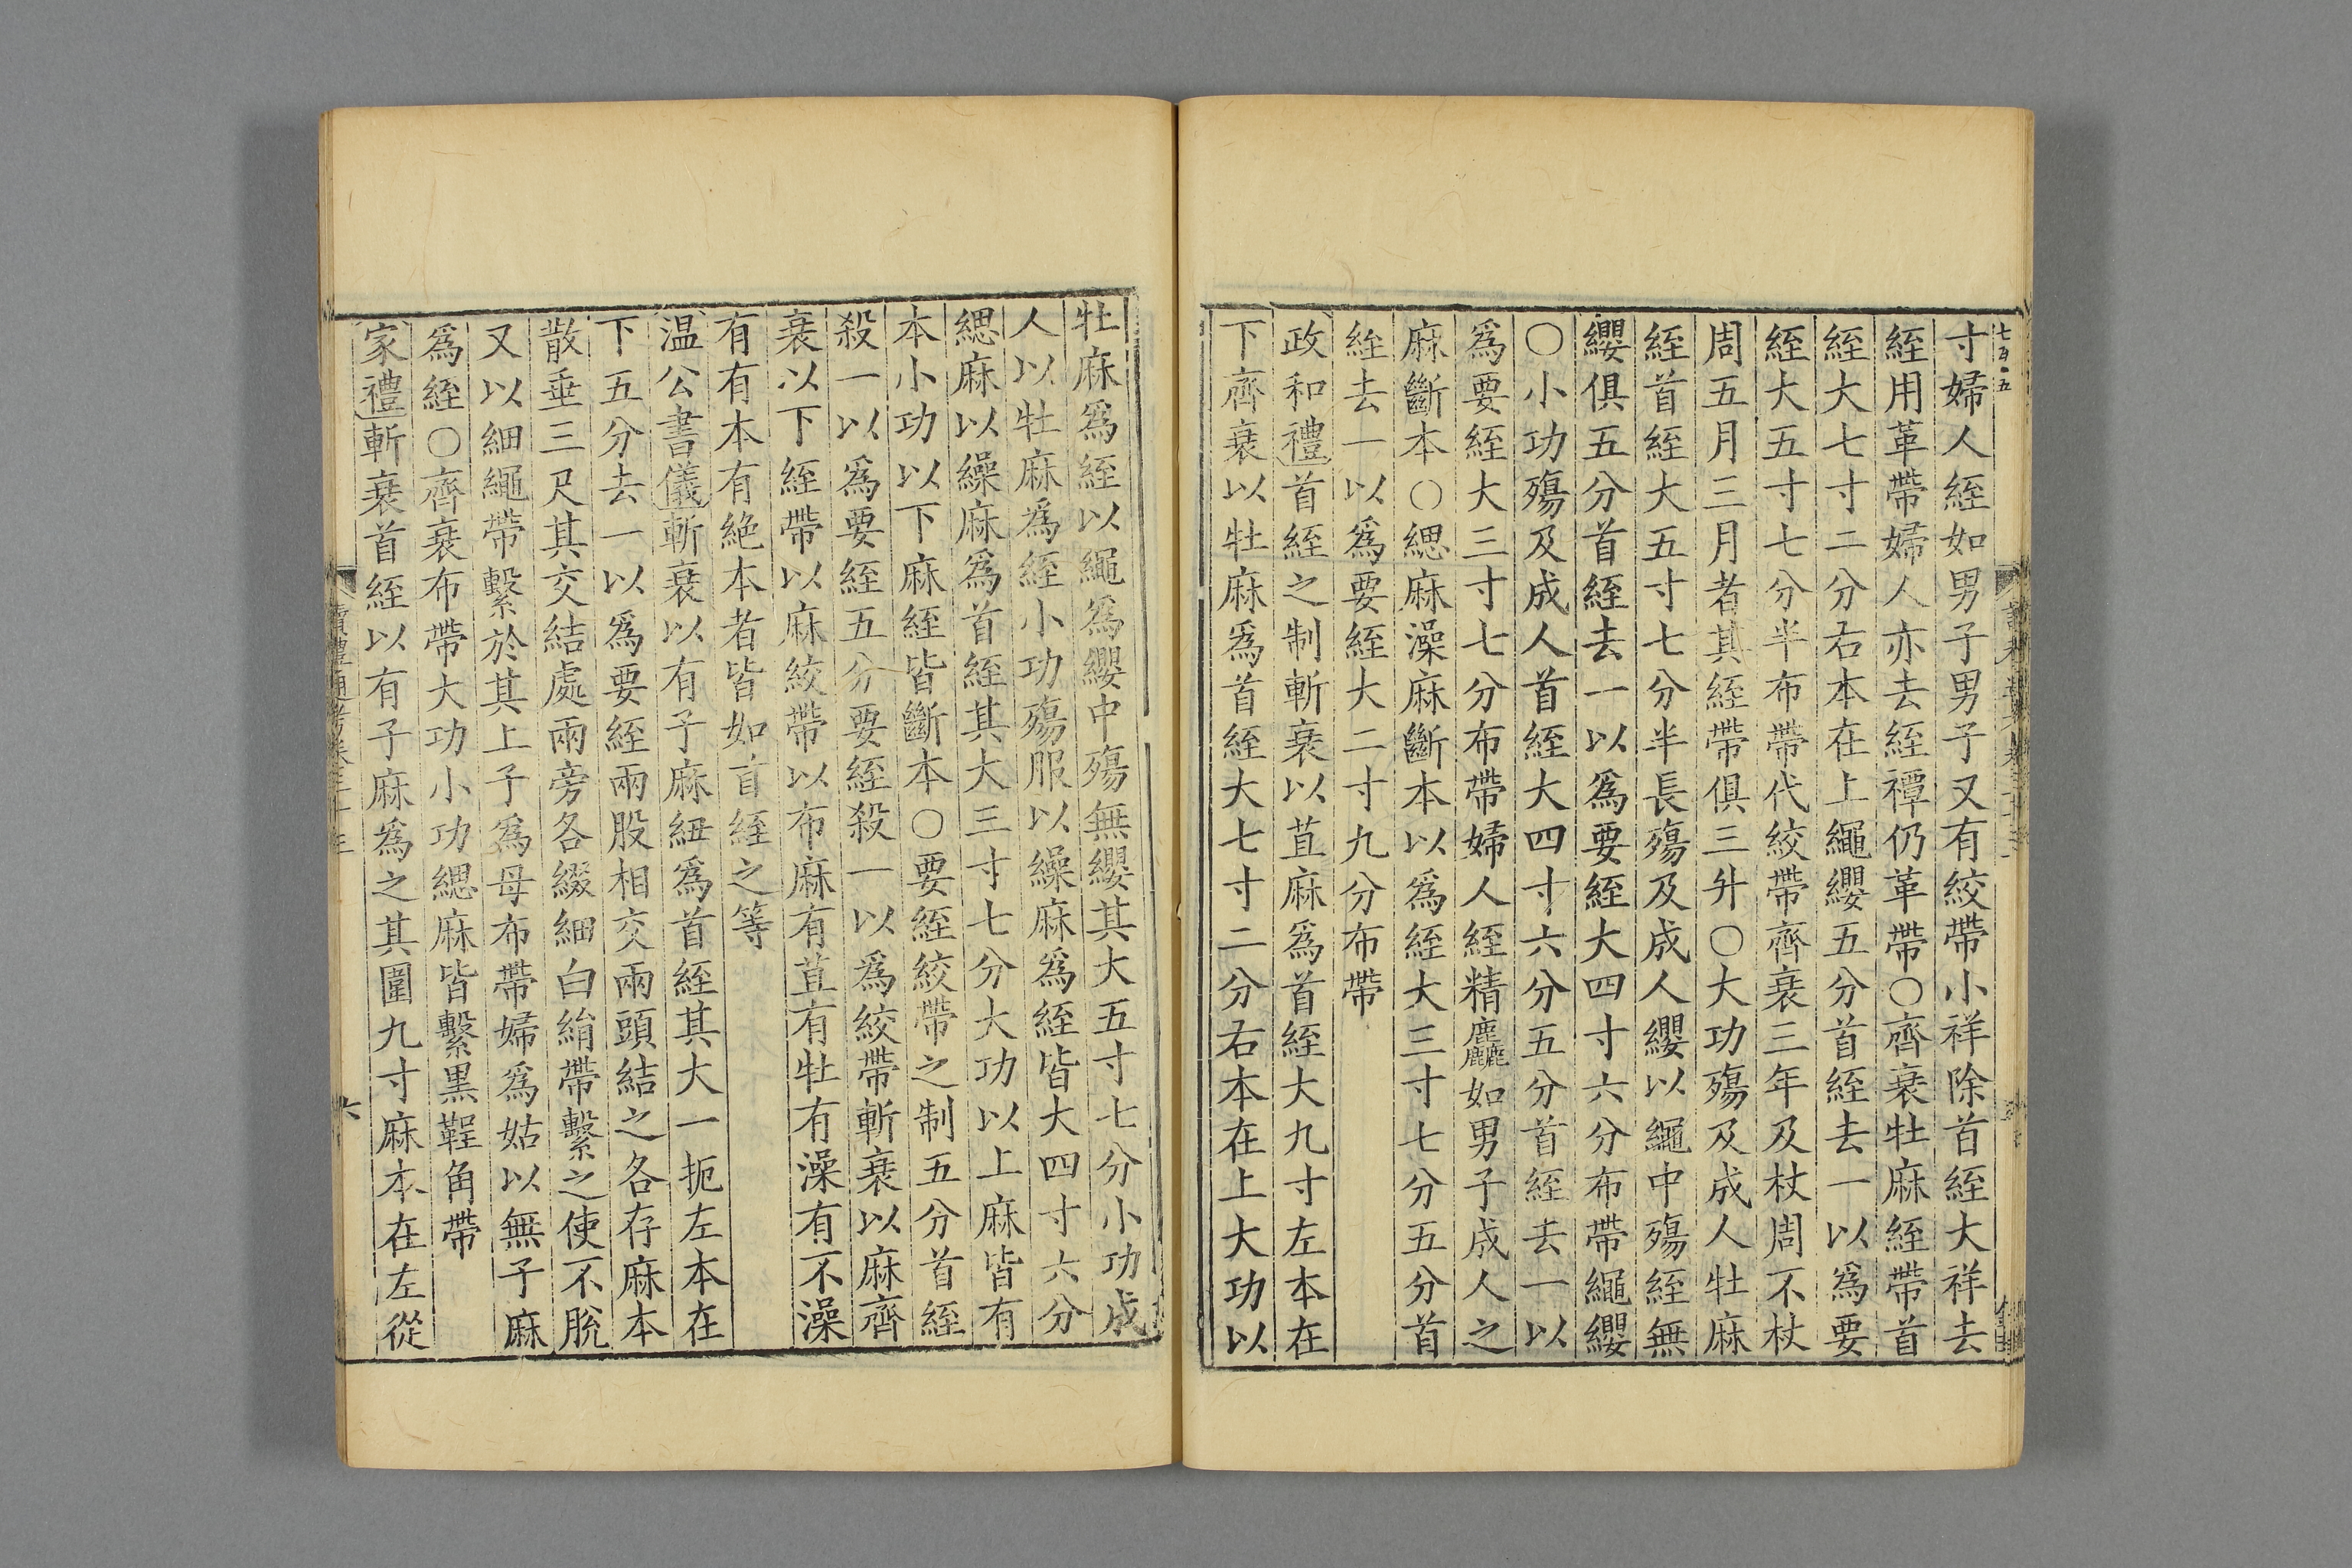 寸婦人絰如男子男子又有絞帶小祥除首絰大祥去
絰用革帶婦人亦去絰禫仍革帶○齊衰牡麻絰帶首
絰大七寸二分右本在上繩纓五分首絰去一以爲要
絰大五寸七分半布帶代絞帶齊衰三年及杖周不杖
周五月三月者其絰帶俱三升○大功殤及成人牡麻
絰首絰大五寸七分半長殤及成人纓以繩中殤絰無
纓俱五分首絰去一以爲要絰大四寸六分布帶繩纓
○小功殤及成人首絰大四寸六分五分首絰去一以
爲要絰大三寸七分布帶婦人絰精麤如男子成人之
麻斷本○緦麻澡麻斷本以爲絰大三寸七分五分首
絰去一以爲要絰大二寸九分布帶
政和禮首絰之制斬衰以苴麻爲首絰大九寸左本在
下齊衰以牡麻爲首絰大七寸二分右本在上大功以
牡麻爲絰以繩爲纓中殤無纓其大五寸七分小功成
人以牡麻爲絰小功殤服以繰麻爲絰皆大四寸六分
緦麻以繰麻爲首絰其大三寸七分大功以上麻皆有
本小功以下麻絰皆斷本○要絰絞帶之制五分首絰
殺一以爲要絰五分要絰殺一以爲絞帶斬衰以麻齊
衰以下絰帶以麻絞帶以布麻有苴有牡有澡有不澡
有有本有絶本者皆如首絰之等
温公書儀斬衰以有子麻紐爲首絰其大一扼左本在
下五分去一以爲要絰兩股相交兩頭結之各存麻本
散垂三尺其交結處兩旁各綴細白絹帶繫之使不脫
又以細繩帶繫於其上子爲母布帶婦爲姑以無子麻
爲絰○齊衰布帶大功小功緦麻皆繫黒鞓角帶
家禮斬衰首絰以有子麻爲之其圍九寸麻本在左從
讀禮通考卷三十三
六